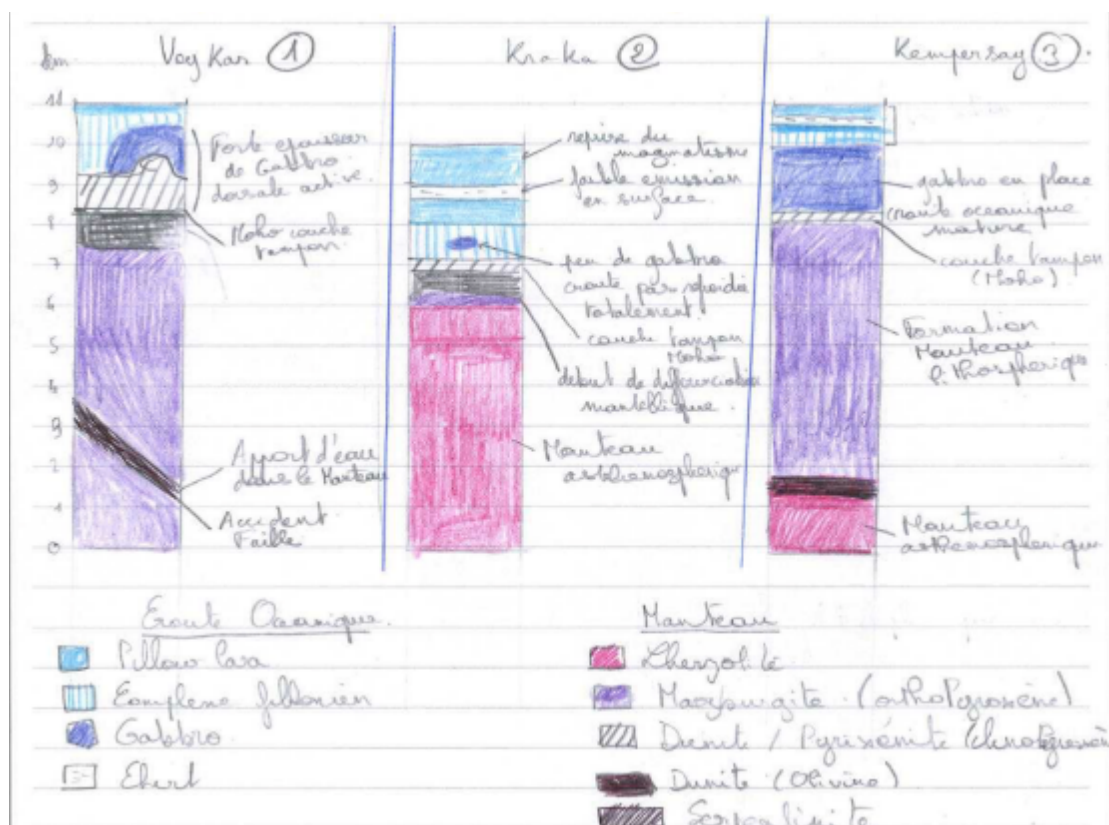 km. Voykar 1
Kraka 2
Kempersay 3.
11
10
9
8
7
6
5
4
3
2
1
0
Forte épaisseur
de Gabbro
dorsale active.
Moho couche
tampon.
Apport d'eau
dans le Manteau
Accident
Faille
reprise du
magmatisme
faible emission
en surface.
peu de gabbro
croute pas refroidie
totalement.
couche tampon
Moho
début de différenciation
mantellique.
Manteau
asthenospherique
gabbro en place
croute oceanique
mature
couche tampon
(Moho)
Formation
Manteau
lithospherique
Manteau
asthenospherique
Croute Oceanique.
Pillow lava
Complexe filonien
Gabbro.
Chert
Manteau
Lherzolite
(orthoPyroxène)
Dunite / Pyroxénite
Dunite (Olivine)
Serpentinite